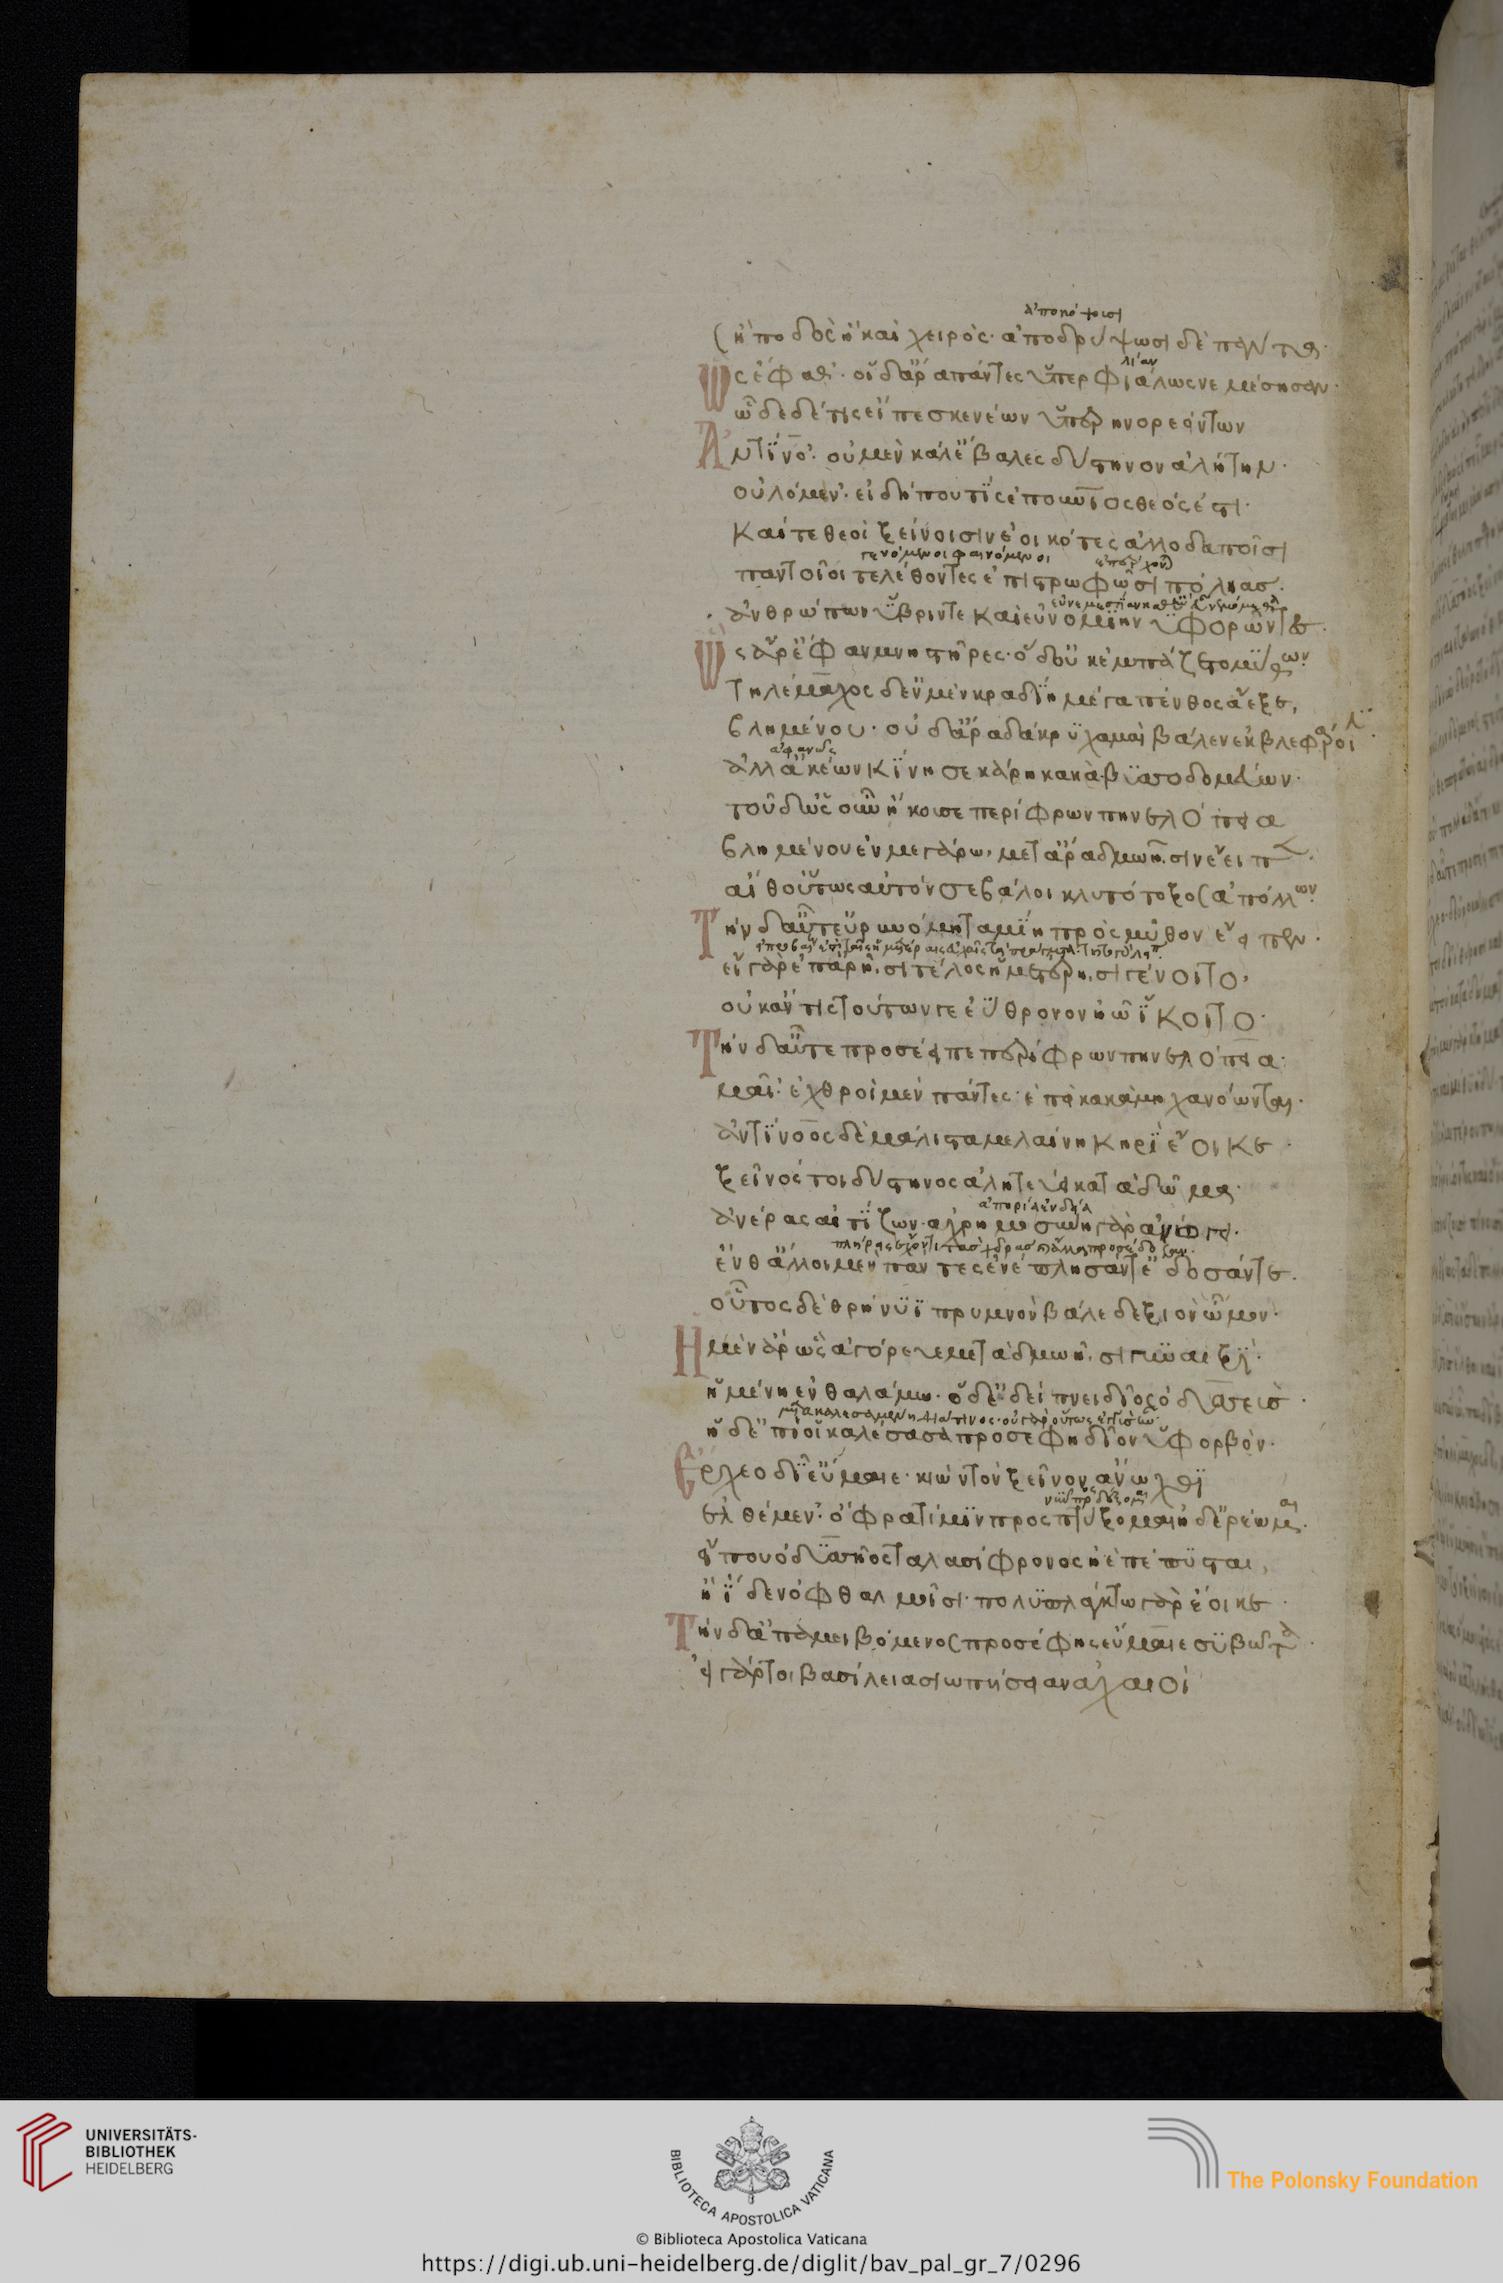 ἀποκόψωσι
ἢ ποδὸς ἢ καὶ χειρός· ἀποδρύψωσι δὲ πάντα·
λίαν
ὣς ἔφαθ'· οἱ δ' ἄρ ἅπαντες ὑπερφιάλως νεμέσησαν·
ὧδε δέ τις εἴπεσκε νέων ὑπερηνορεόντων
Ἀντίνο'· οὐ μὲν κάλ' ἔβαλες δύστηνον ἀλήτην·
οὐλόμεν'· εἰ δή που τίς ἐπουράνιος θεός ἐστι·
καί τε θεοὶ ξείνοισιν ἐοικότες ἀλλοδαποῖσι
γενόμενοι φαινόμενοι
παντοῖοι τελέθοντες ἐπιστρωφῶσι πόληας·
ἀνθρώπων ὕβριν τε καὶ εὐνομίην ἐφορῶντες·
ὣς ἄρ' ἔφαν μνηστῆρες· ὁ δ' οὐκ ἐμπάζετο μύθων·
Τηλέμαχος δ' ἐν μὲν κραδίῃ μέγα πένθος ἄεξε,
βλημένου· οὐδ' ἄρα δάκρυ χαμαὶ βάλεν ἐκ βλεφάροιϊν·
ἀφώνως
ἀλλ' ἀκέων κίνησε κάρη κακὰ βυσσοδομεύων·
τοῦ δ' ὡς οὖν ἤκουσε περίφρων πηνελόπεια
βλημένου ἐν μεγάρω, μετ' ἄρα δμωῆισιν ἔειπεν·
αἴθ' οὕτως αὐτόν σε βάλοι κλυτότοξος ἀπόλλων·
Τὴν δ' αὖτ' εὐρυνόμη ταμίη πρὸς μῦθον ἔειπεν·
εἰ γὰρ ἐπ' ἀρῆισι τέλος ἡμετέρηισι γένοιτο,
οὐκ ἄν τις τούτων γε ἐύθρονον ἠῶ ἵκοιτο·
Τὴν δ' αὖτε προσέειπε περίφρων πηνελόπεια·
μαῖ'· ἐχθροὶ μὲν πάντες· ἐπεὶ κακὰ μηχανόωνται·
ἀντίνοος δὲ μάλιστα μελαίνη κηρὶ ἔοικε·
ξεῖνός τοι δύστηνος ἀλητεύει κατὰ δῶμα·
ἀπορία ἔνδεια
ἀνέρας αἰτίζων· ἀχρημοσύνη γὰρ ἀνώγει·
ἔνθ' ἄλλοι μὲν πάντες ἐνέπλησάν τ' ἔδοσάν τε·
οὗτος δὲ θρήνυϊ πρυμνὸν βάλε δεξιὸν ὦμον·
Ἡ μὲν ἄρ' ὣς ἀγόρευε μετὰ δμωῆισι γυναιξὶ·
ἡμένη ἐν θαλάμω· ὁ δ' ἐδείπνει δῖος ὀδυσσεύς·
ἡ δ' ἐπὶ οἷ καλέσασα προσέφη δῖον ὑφορβόν·
Ἔρχεο δῖ' εὔμαιε· κιὼν τὸν ξεῖνον ἄνωχθι
ἐλθέμεν· ὄφρα τί μιν προσπτύξομαι ἠδ' ἐρέωμαι·
εἴ που ὀδυσσῆος ταλασίφρονος ἠὲ πέπυσται,
ἢ ἴδεν ὀφθαλμοῖσι· πολυπλάγκτω γὰρ ἔοικε·
Τὴν δ' ἀπαμειβόμενος προσέφης εὔμαιε συβῶτα·
εἰ γάρ τοι βασίλεια σιωπήσειαν ἀχαιοὶ
UNIVERSITÄTS-
BIBLIOTHEK
HEIDELBERG
BIBLIOTECA APOSTOLICA VATICANA
The Polonsky Foundation
© Biblioteca Apostolica Vaticana
https://digi.ub.uni-heidelberg.de/diglit/bav_pal_gr_7/0296